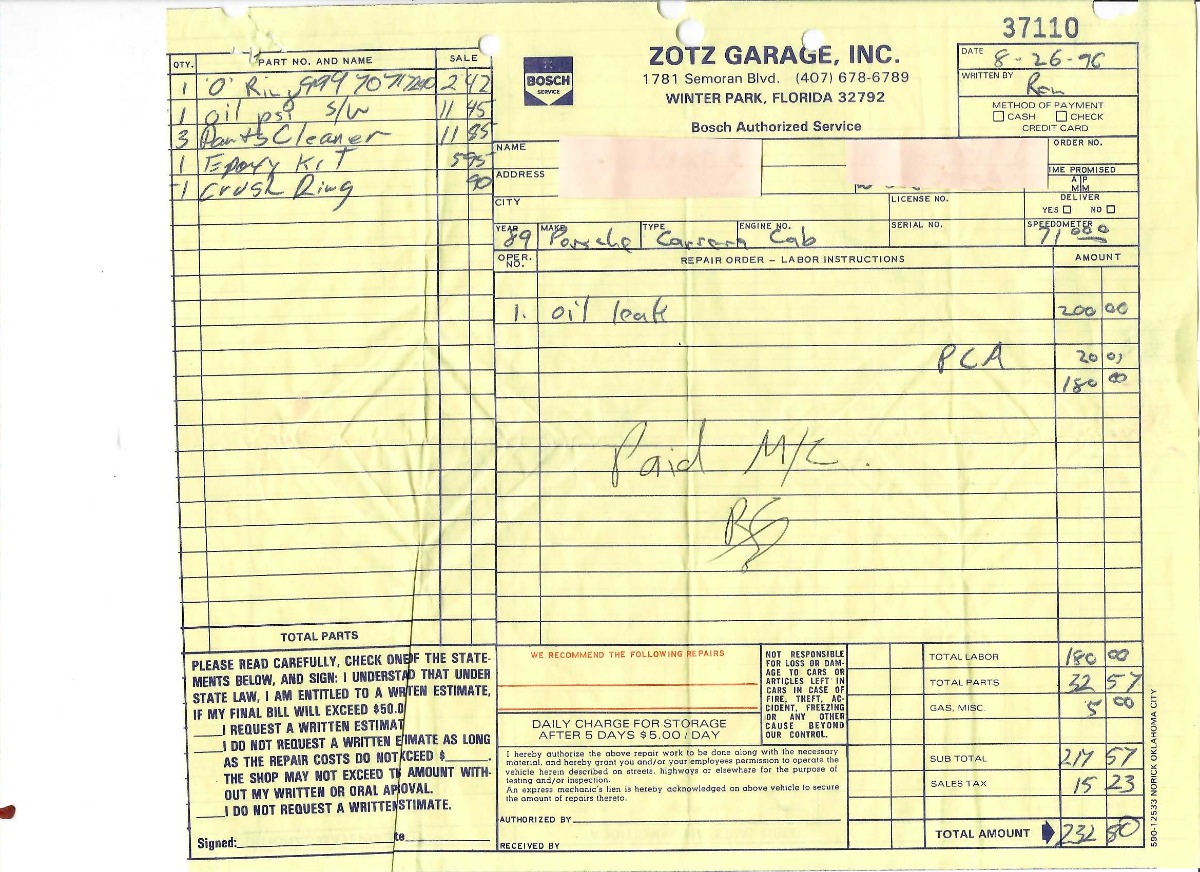 37110
ZOTZ GARAGE, INC.
1781 Semoran Blvd. (407) 678-6789
WINTER PARK, FLORIDA 32792
Bosch Authorized Service
BOSCH
SERVICE
DATE 8-26-96
WRITTEN BY Ron
METHOD OF PAYMENT
CASH CHECK
CREDIT CARD
QTY. PART NO. AND NAME SALE
1 'O' Ring 999 707 2 42
1 oil psi s/w 11 45
3 Parts Cleaner 11 85
1 Epoxy Kit 5 95
1 Crush Ring 90
TOTAL PARTS
NAME
ORDER NO.
ADDRESS
IME PROMISED
A P
M M
CITY
LICENSE NO.
DELIVER
YES NO
YEAR MAKE TYPE ENGINE NO. SERIAL NO. SPEEDOMETER
89 Porsche Carrera Cab 71000
OPER. NO. REPAIR ORDER – LABOR INSTRUCTIONS AMOUNT
1. oil leak 200 00
PCA 20 00
180 00
Paid M/C.
PLEASE READ CAREFULLY, CHECK ONE OF THE STATE-
MENTS BELOW, AND SIGN: I UNDERSTAD THAT UNDER
STATE LAW, I AM ENTITLED TO A WRTEN ESTIMATE,
IF MY FINAL BILL WILL EXCEED $50.0
I REQUEST A WRITTEN ESTIMAT
I DO NOT REQUEST A WRITTEN EIMATE AS LONG
AS THE REPAIR COSTS DO NOT XCEED $
THE SHOP MAY NOT EXCEED TH AMOUNT WITH-
OUT MY WRITTEN OR ORAL APOVAL.
I DO NOT REQUEST A WRITTEN STIMATE.
Signed: te
WE RECOMMEND THE FOLLOWING REPAIRS
DAILY CHARGE FOR STORAGE
AFTER 5 DAYS $5.00 / DAY
NOT RESPONSIBLE
FOR LOSS OR DAM-
AGE TO CARS OR
ARTICLES LEFT IN
CARS IN CASE OF
FIRE, THEFT, AC-
CIDENT, FREEZING
OR ANY OTHER
CAUSE BEYOND
OUR CONTROL.
I hereby authorize the above repair work to be done along with the necessary
material, and hereby grant you and/or your employees permission to operate the
vehicle herein described on streets, highways or elsewhere for the purpose of
testing and/or inspection.
An express mechanic's lien is hereby acknowledged on above vehicle to secure
the amount of repairs thereto.
AUTHORIZED BY
RECEIVED BY
TOTAL LABOR 180 00
TOTAL PARTS 32 57
GAS, MISC. 5 00
SUB TOTAL 217 57
SALES TAX 15 23
TOTAL AMOUNT 232 80
590-12533 NORICK OKLAHOMA CITY